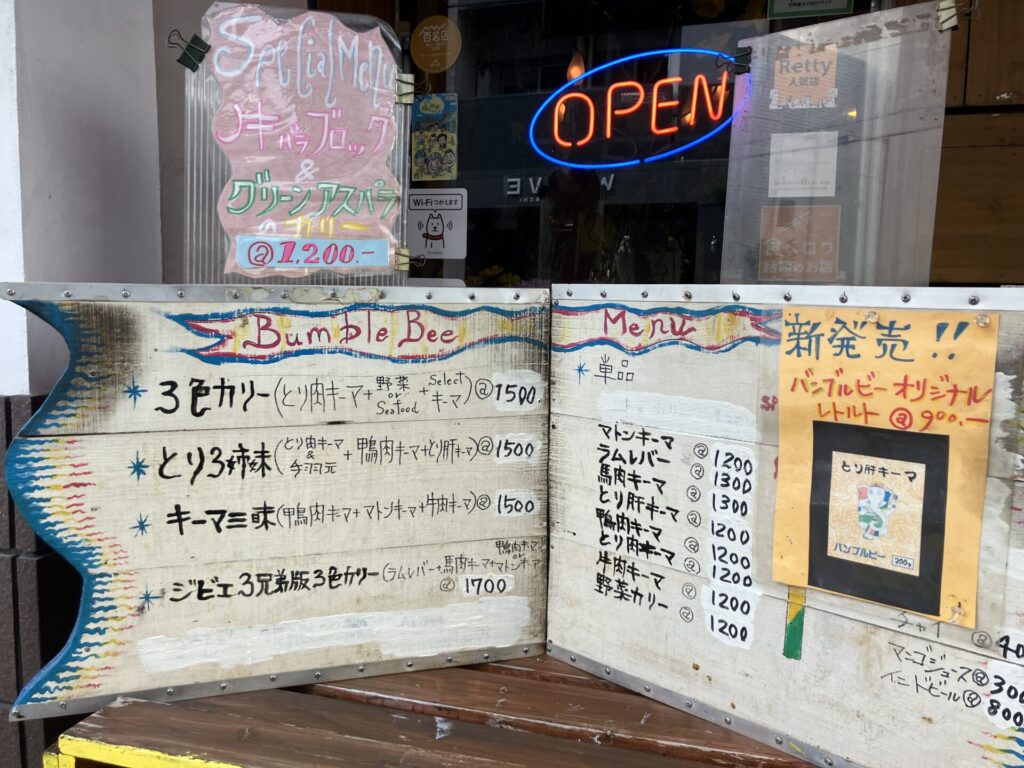 Special Menu
メキャベブロック
&
グリーンアスパラ
のカリー
@1,200.-
百名店
Wi-Fiつかえます
OPEN
Retty
人気店
食べログ
Bumble Bee
3色カリー(とり肉キーマ+野菜 or Seafood+Select キーマ)@1500.
とり3姉妹(とり肉キーマ & 手羽元+鴨肉キーマ+とり肝キーマ)@1500
キーマ三昧(鴨肉キーマ+マトンキーマ+牛肉キーマ)@1500
ジビエ3兄弟版3色カリー(ラムレバー+馬肉キーマ+鴨肉キーマ or マトンキーマ
@1700
Menu
単品
マトンキーマ @1200
ラムレバー @1300
馬肉キーマ @1300
とり肝キーマ @1200
鴨肉キーマ @1200
とり肉キーマ @1200
牛肉キーマ @1200
野菜カリー @1200
新発売!!
バンブルビー オリジナル
レトルト @900.-
とり肝キーマ
バンブルビー
200g
チャイ @40
マンゴジュース@300
インドビール@800